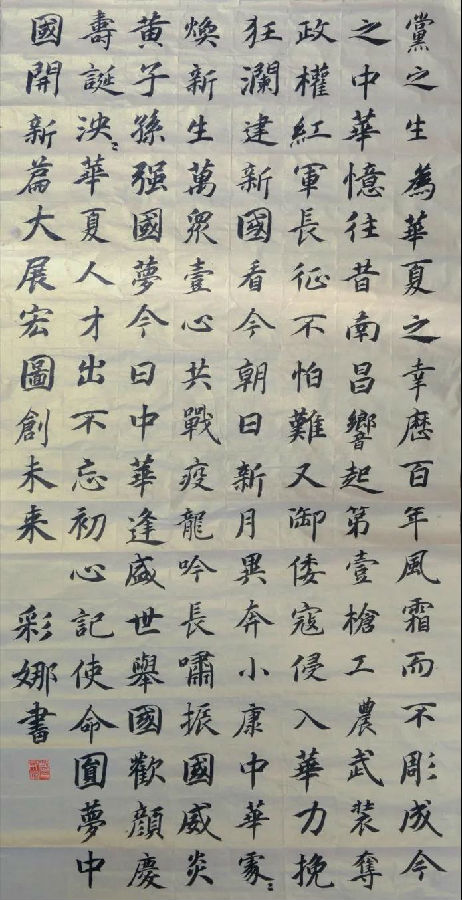 黨之生為華夏之幸歷百年風霜而不彫成今
之中華憶往昔南昌響起第壹槍工農武裝奪
政權紅軍長征不怕難又御倭寇侵入華力挽
狂瀾建新國看今朝日新月異奔小康中華家〻
煥新生萬眾壹心共戰疫龍吟長嘯振國威炎
黃子孫强國夢今日中華逢盛世舉國歡顏慶
壽誕泱〻華夏人才出不忘初心記使命圓夢中
國開新篇大展宏圖創未来 彩娜書